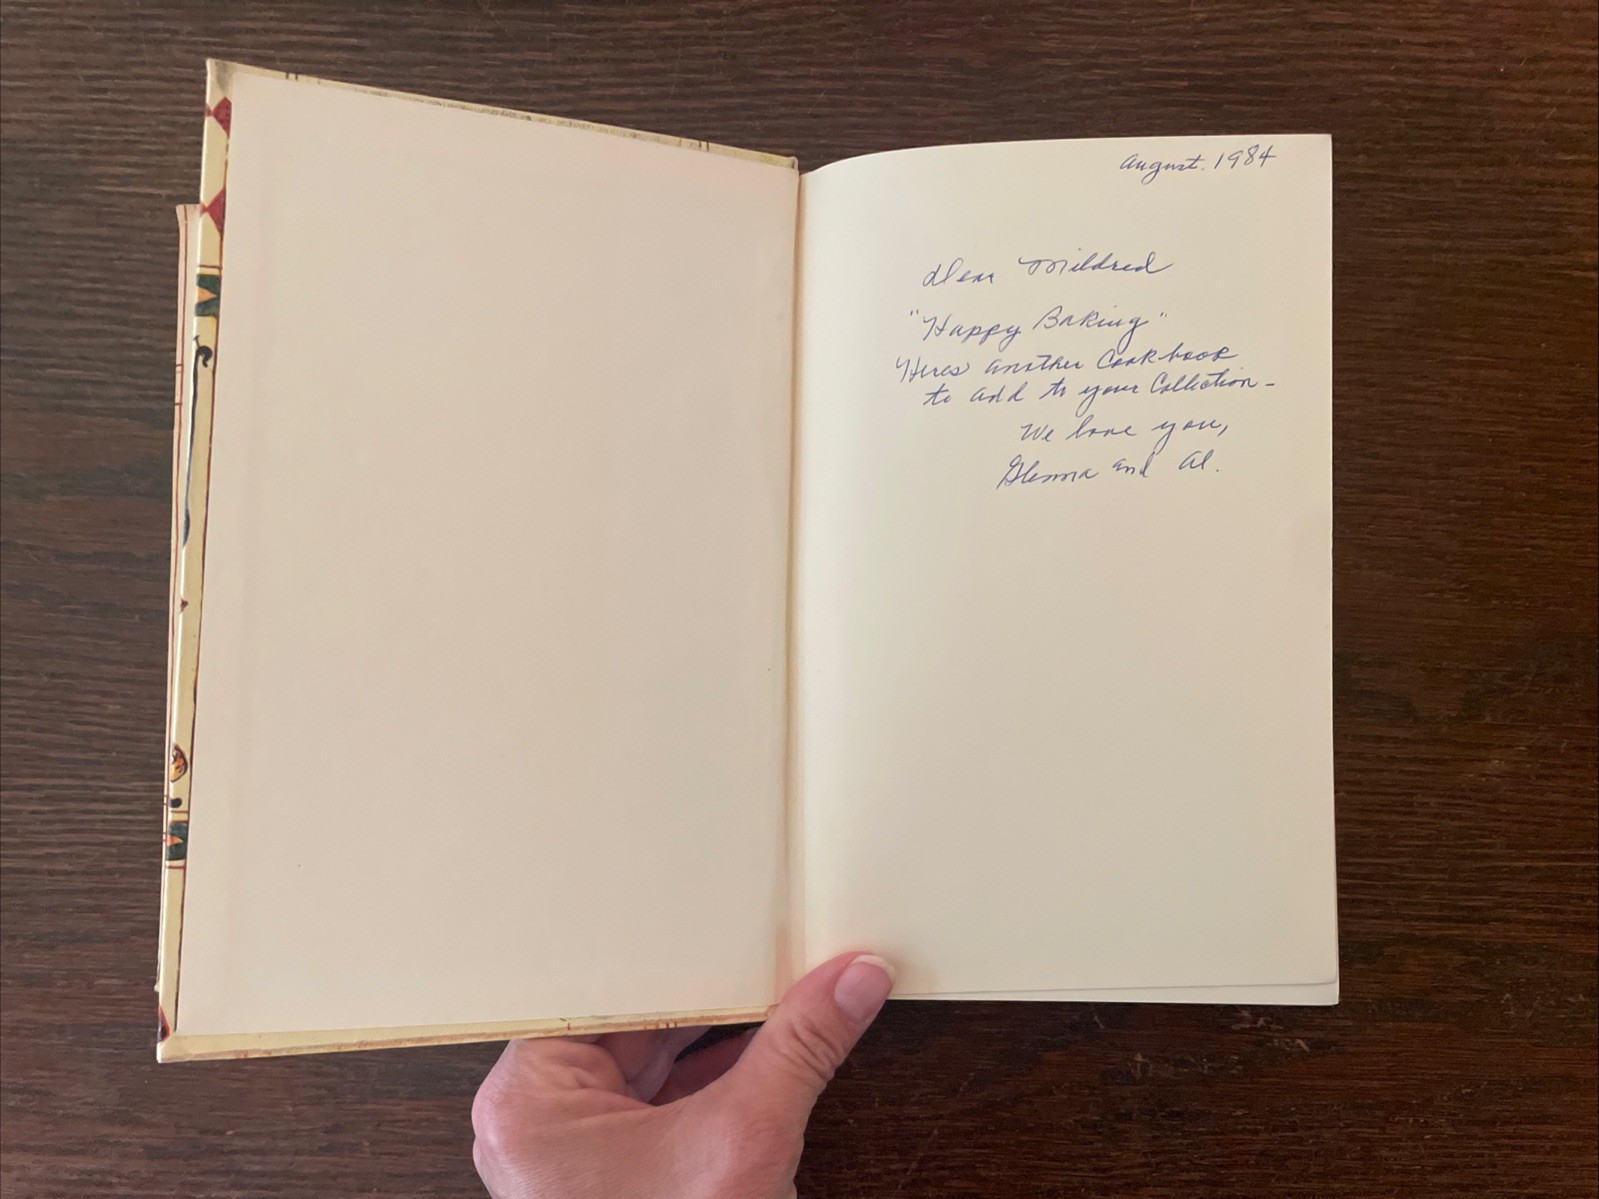 August. 1984
Dear Mildred
"Happy Baking"
Heres another Cookbook
to add to your Collection -
We love you,
Glenna and Al.